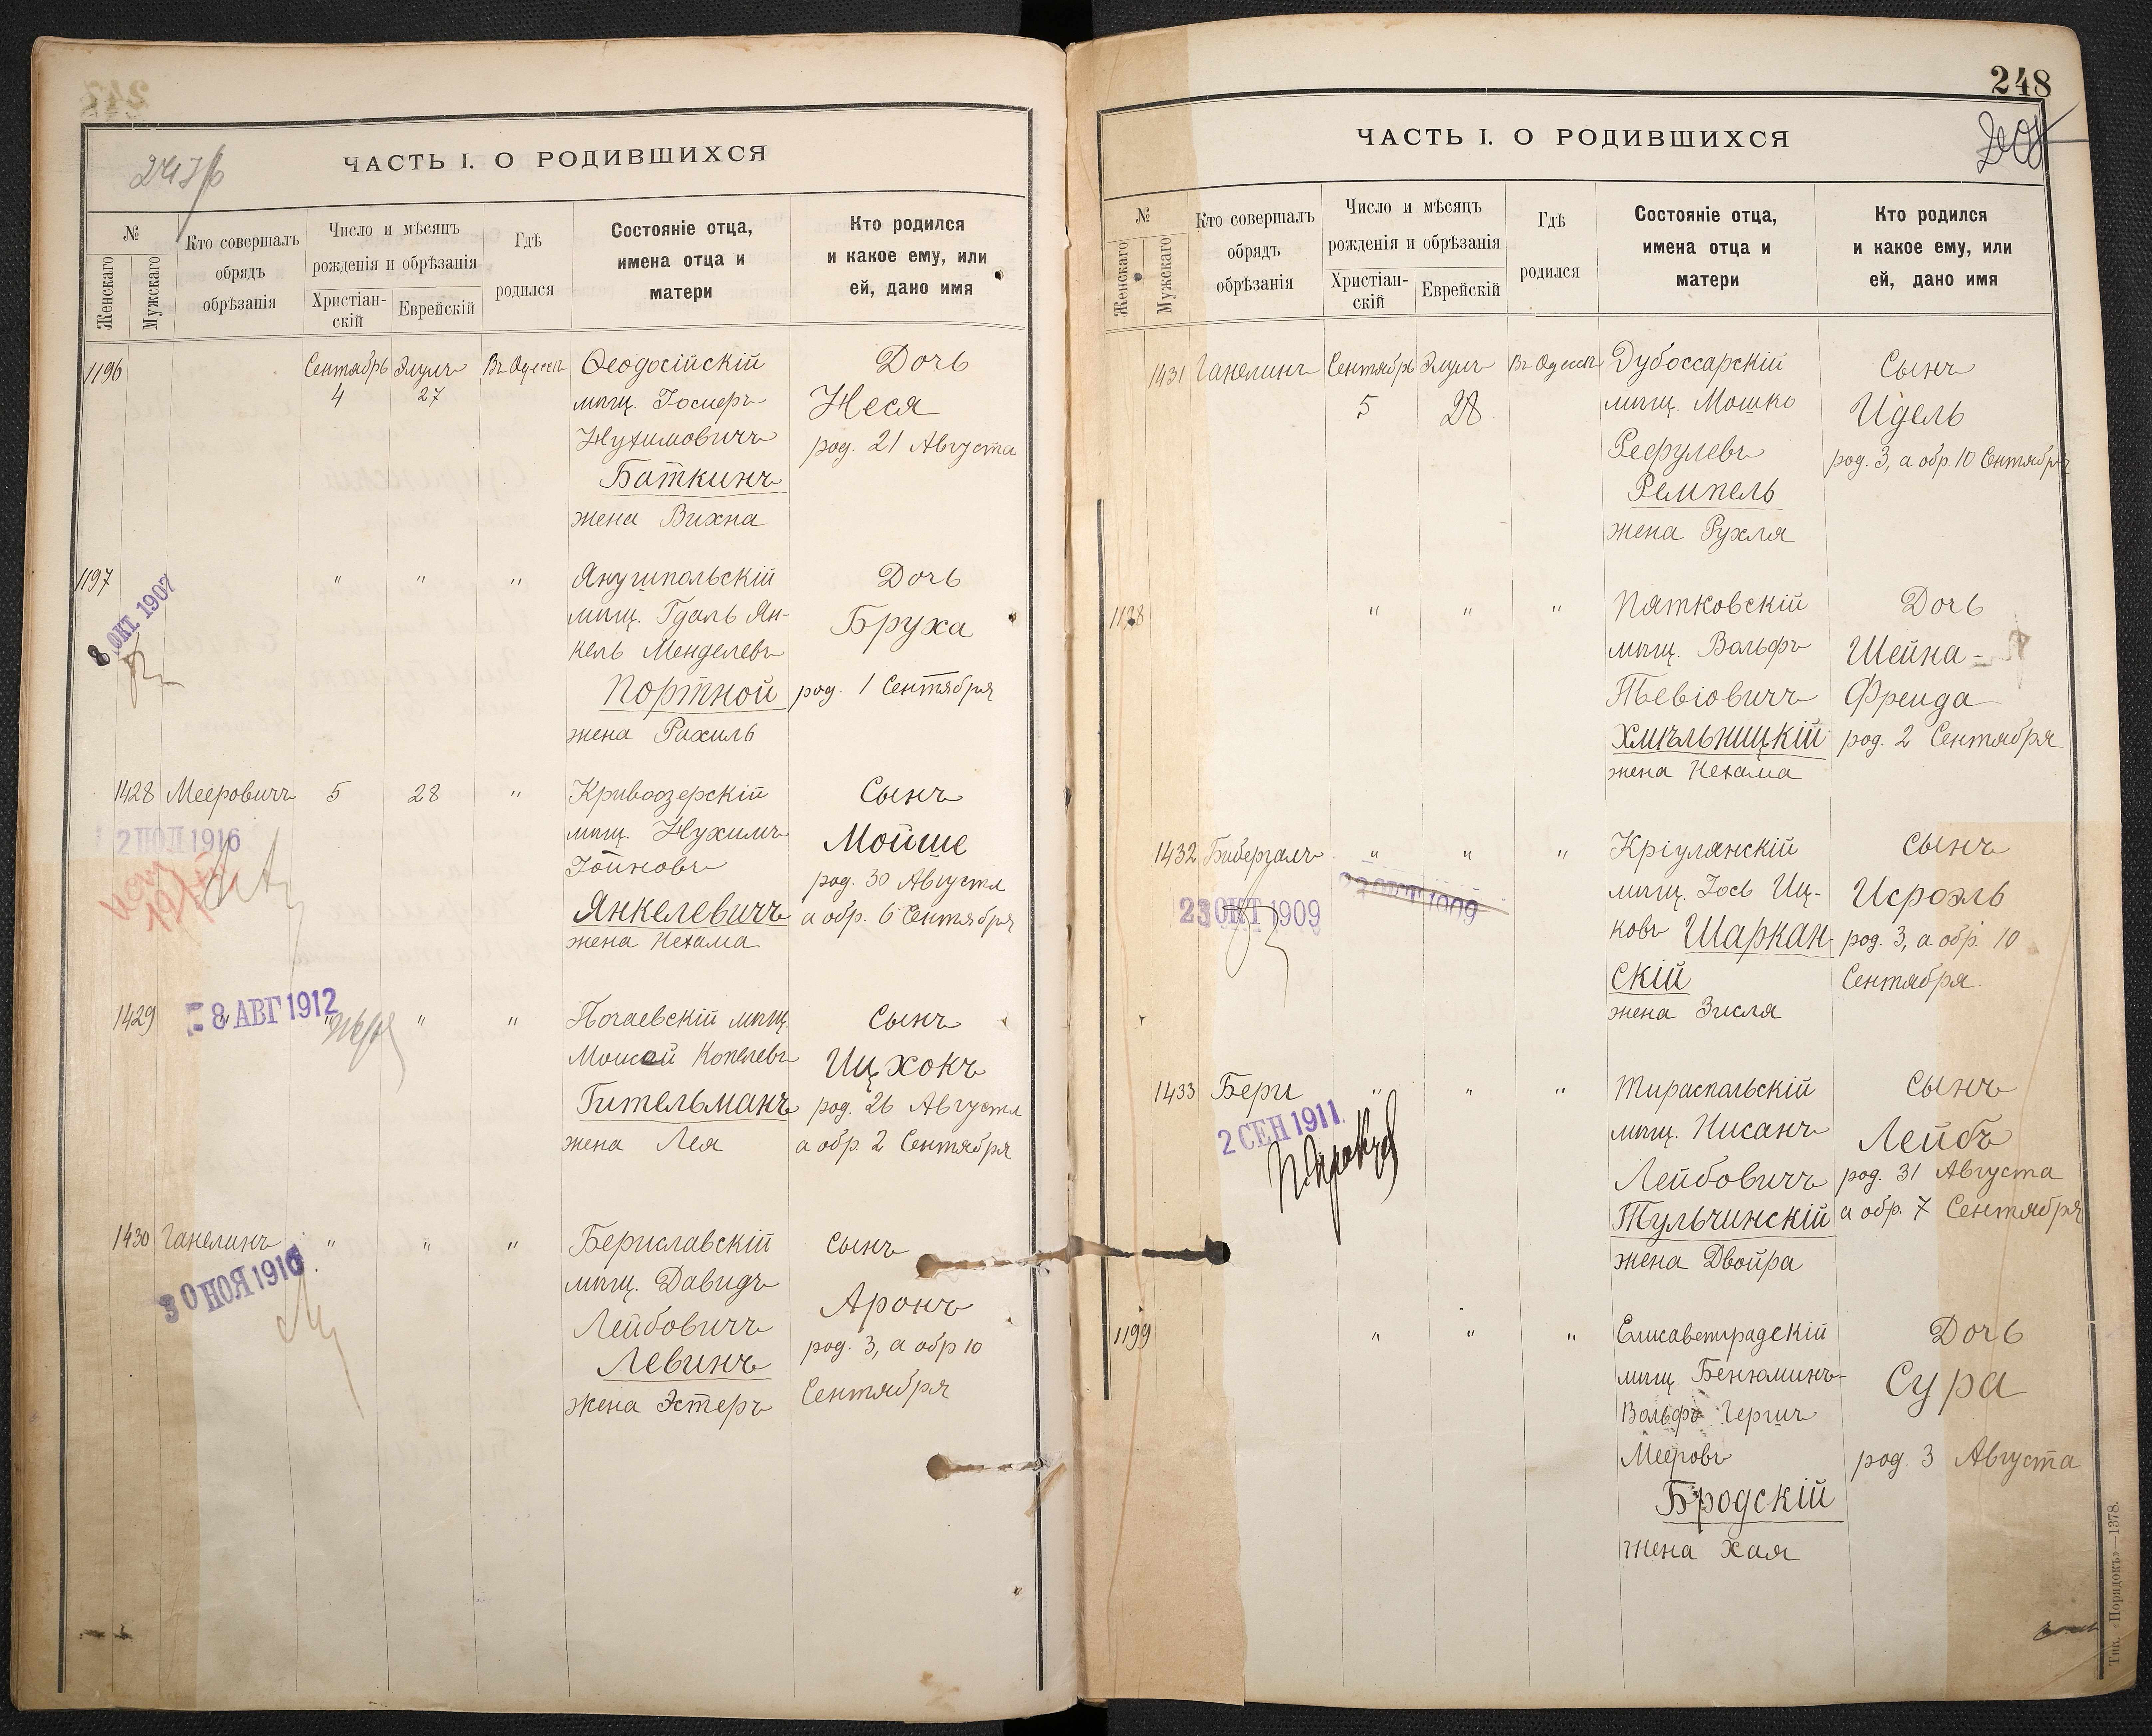 247
ЧАСТЬ I. О РОДИВШИХСЯ
№
Женскаго
Мужскаго
Кто совершалъ
обрядъ
обрѣзанія
Число и мѣсяцъ
рожденія и обрѣзанія
Христіан-
скій
Еврейскій
Гдѣ
родился
Состояніе отца,
имена отца и
матери
Кто родился
и какое ему, или
ей, дано имя
1196
Сентябрь
4
Элулъ
27
Въ Одессѣ
Ѳеодосійскій
мѣщ. Іосифъ
Нухимовичъ
Баткинъ
жена Вихна
Дочь
Неся
род. 21 Августа
1197
8 ОКТ. 1907
"
"
"
Янушпольскій
мѣщ. Гдаль Ян-
кель Менделевъ
Портной
жена Рахиль
Дочь
Бруха
род. 1 Сентября
1428
Мееровичъ
2 ПОЛ 1916
5
28
"
Кривоозерскій
мѣщ. Нухимъ
Іойновъ
Янкелевичъ
жена Нехама
Сынъ
Мойше
род. 30 Августа
а обр. 6 Сентября
1429
"
8 АВГ 1912
"
"
"
Почаевскій мѣщ.
Моисей Копелевъ
Гительманъ
жена Лея
Сынъ
Ицхокъ
род. 26 Августа
а обр. 2 Сентября
1430
Ганелинъ
30 НОЯ 1910
"
"
"
Бериславскій
мѣщ. Давидъ
Лейбовичъ
Левинъ
жена Эстеръ
Сынъ
Аронъ
род. 3, а обр 10
Сентября
248
ЧАСТЬ I. О РОДИВШИХСЯ
№
Женскаго
Мужскаго
Кто совершалъ
обрядъ
обрѣзанія
Число и мѣсяцъ
рожденія и обрѣзанія
Христіан-
скій
Еврейскій
Гдѣ
родился
Состояніе отца,
имена отца и
матери
Кто родился
и какое ему, или
ей, дано имя
1431
Ганелинъ
Сентябрь
5
Элулъ
28
Въ Одессѣ
Дубоссарскій
мѣщ. Мошко
Рефулевъ
Ремпель
жена Рухля
Сынъ
Идель
род. 3, а обр. 10 Сентября
1198
"
"
"
Пятковскій
мѣщ. Вольфъ
Тевіовичъ
Хмѣльницкій
жена Нехама
Дочь
Шейна-
Фрейда
род. 2 Сентября
1432
Бибергалъ
23 ОКТ 1909
"
22 ОКТ 1909
"
"
Кріулянскій
мѣщ. Іось Иц-
ковъ Шаркан-
скій
жена Зисля
Сынъ
Исроэль
род. 3, а обр. 10
Сентября.
1433
Бери
2 СЕН 1911
"
"
"
Тираспольскій
мѣщ. Нисанъ
Лейбовичъ
Тульчинскій
жена Двойра
Сынъ
Лейбъ
род. 31 Августа
а обр. 7 Сентября
1199
"
"
"
Елисаветградскій
мѣщ. Бенюминъ-
Вольфъ Гершъ
Мееровъ
Бродскій
жена Хая
Дочь
Сура
род. 3 Августа
Тип. «Порядокъ»—1378.